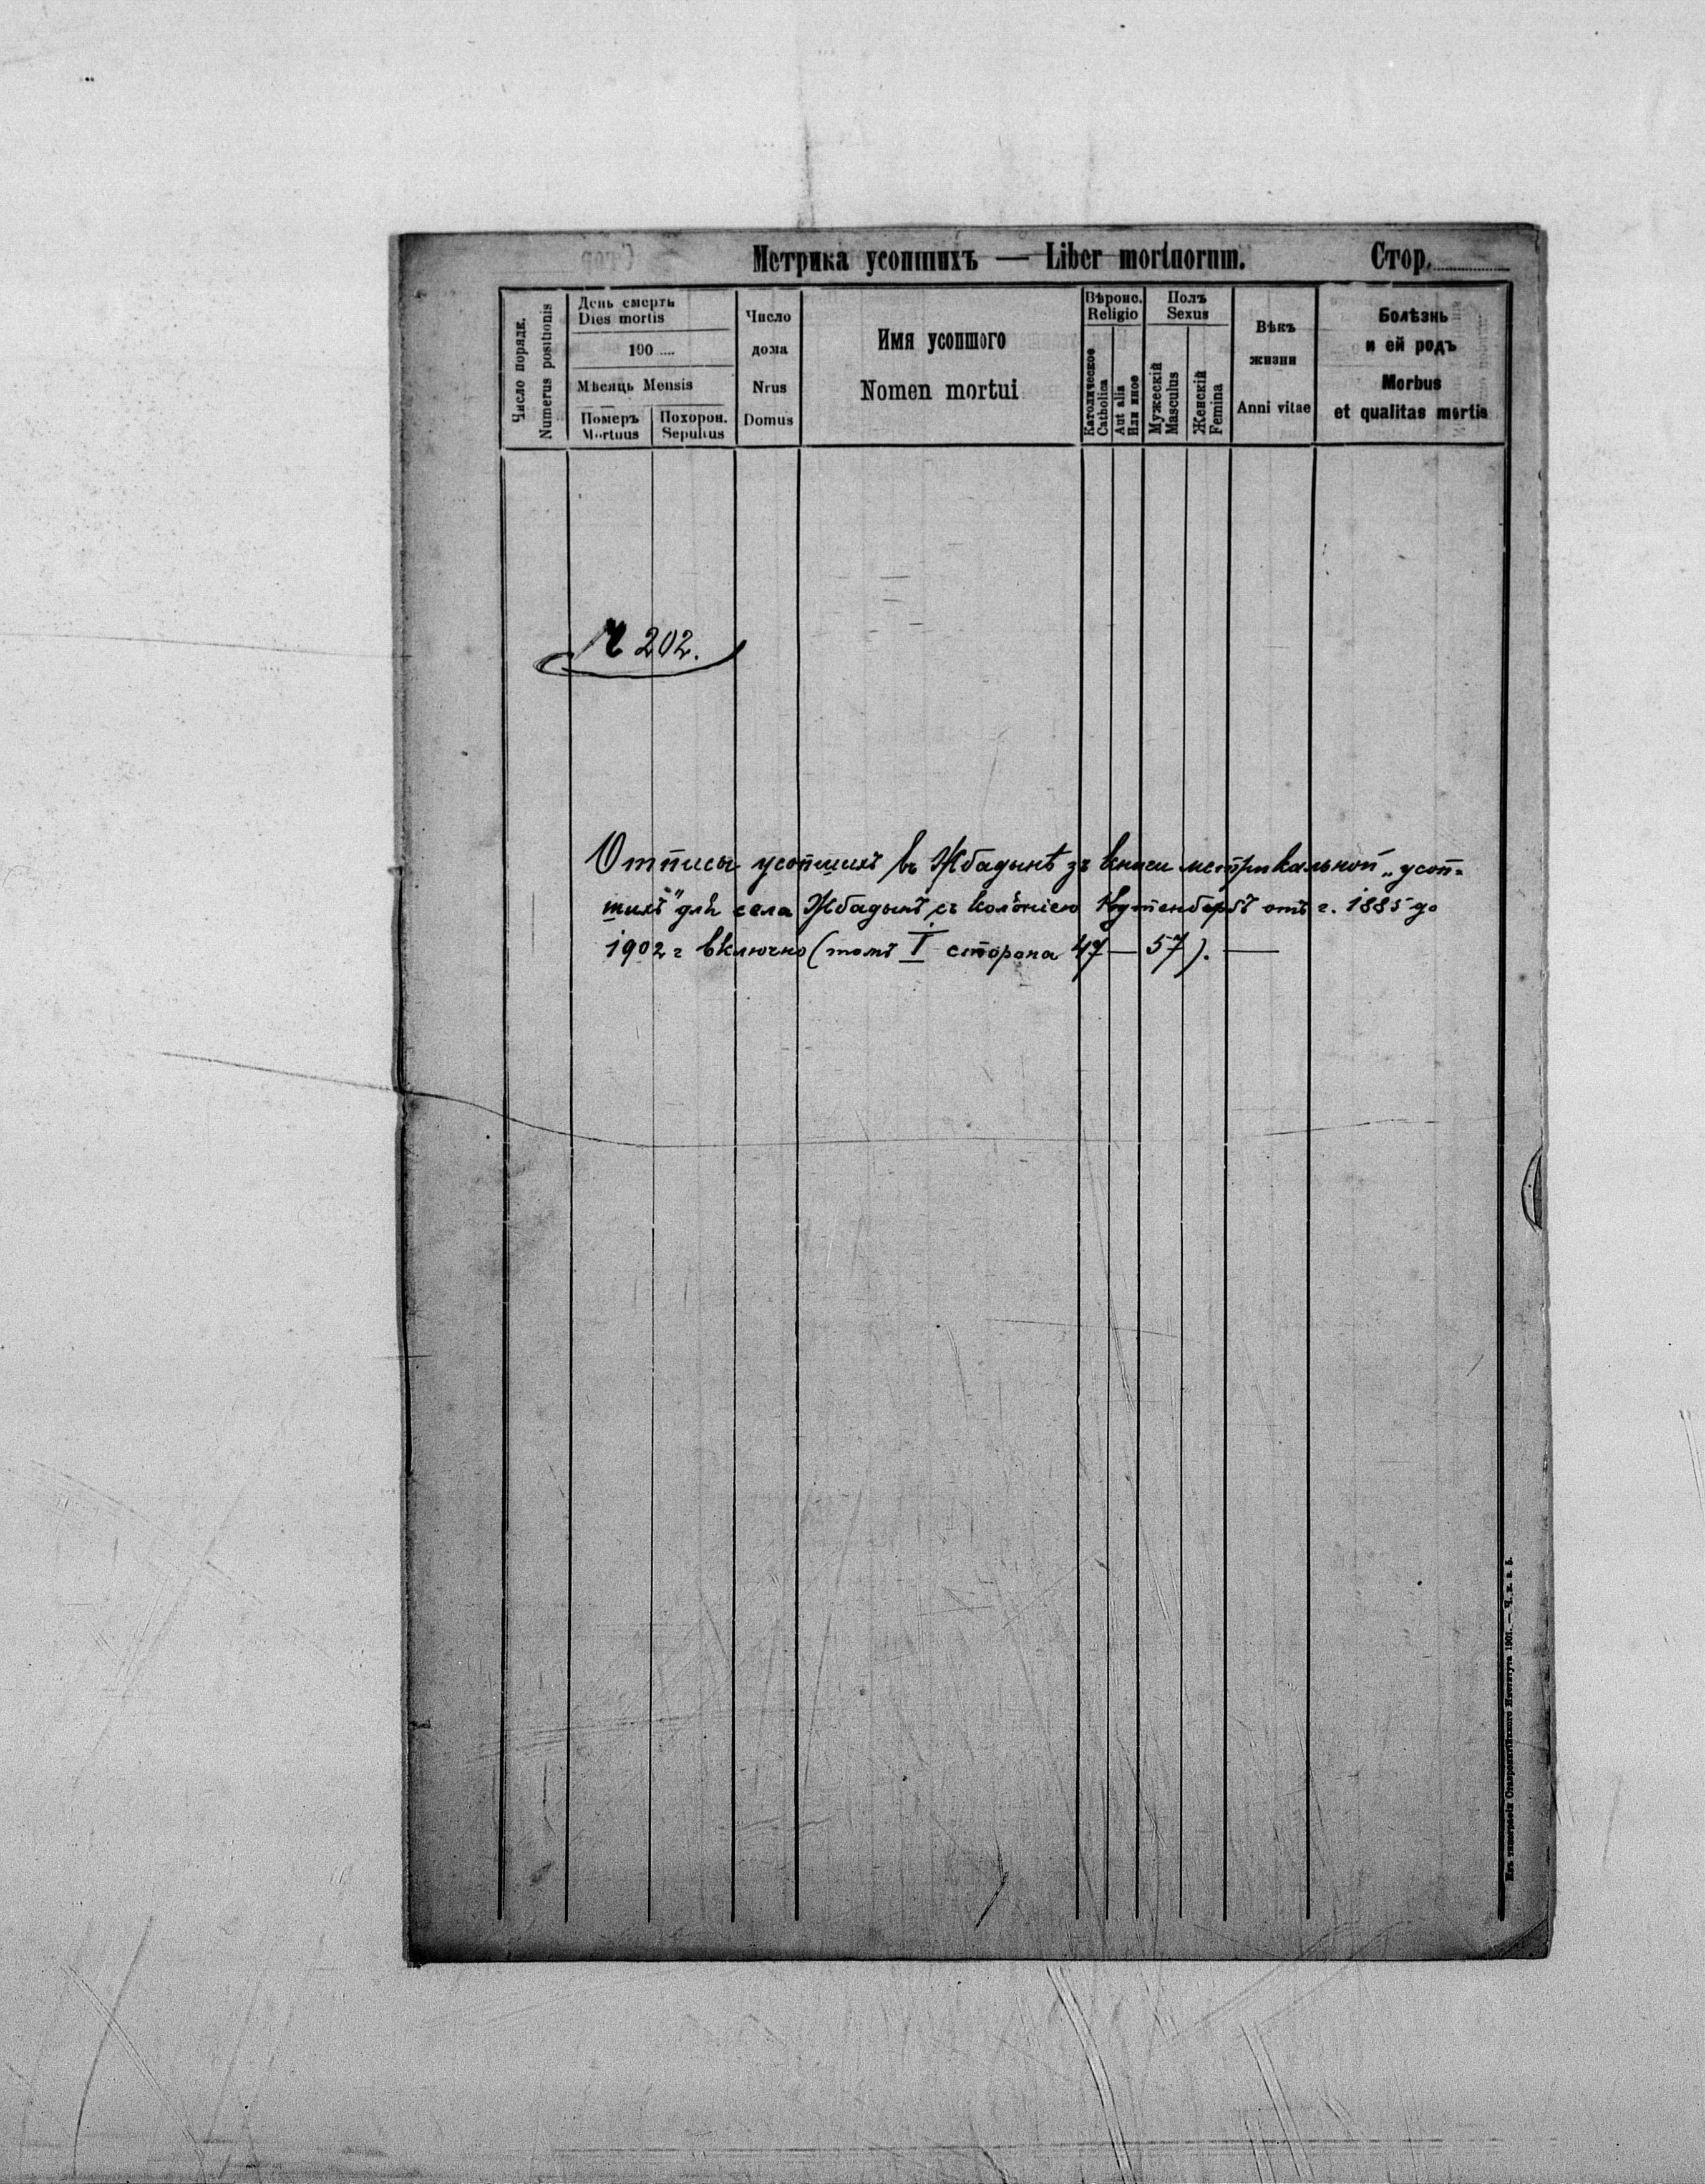 Метрика усопшихъ — Liber mortuorum. Стор.
Число порядк.
Numerus positionis
День смерти
Dies mortis
190 ....
Мѣсяць Mensis
Померъ
Mortuus
Похорон.
Sepultus
Число
дома
Nrus
Domus
Имя усопшого
Nomen mortui
Вѣроис.
Religio
Католическое
Catholica
Aut alia
Или иное
Полъ
Sexus
Мужескій
Masculus
Женскій
Femina
Вѣкъ
жизни
Anni vitae
Болѣзнь
и ей родъ
Morbus
et qualitas mortis
Ч 202.
Отписы усопшихъ въ Жбадынѣ зъ книги метрикальной „усоп=
шихъ" для села Жбадынѣ съ колоніею отъ г. 1885 до
1902 г включно (томъ I сторона 47 — 57). —
Изъ типографіи Ставропигійского Института 1901. — Ч. в. а. 5.